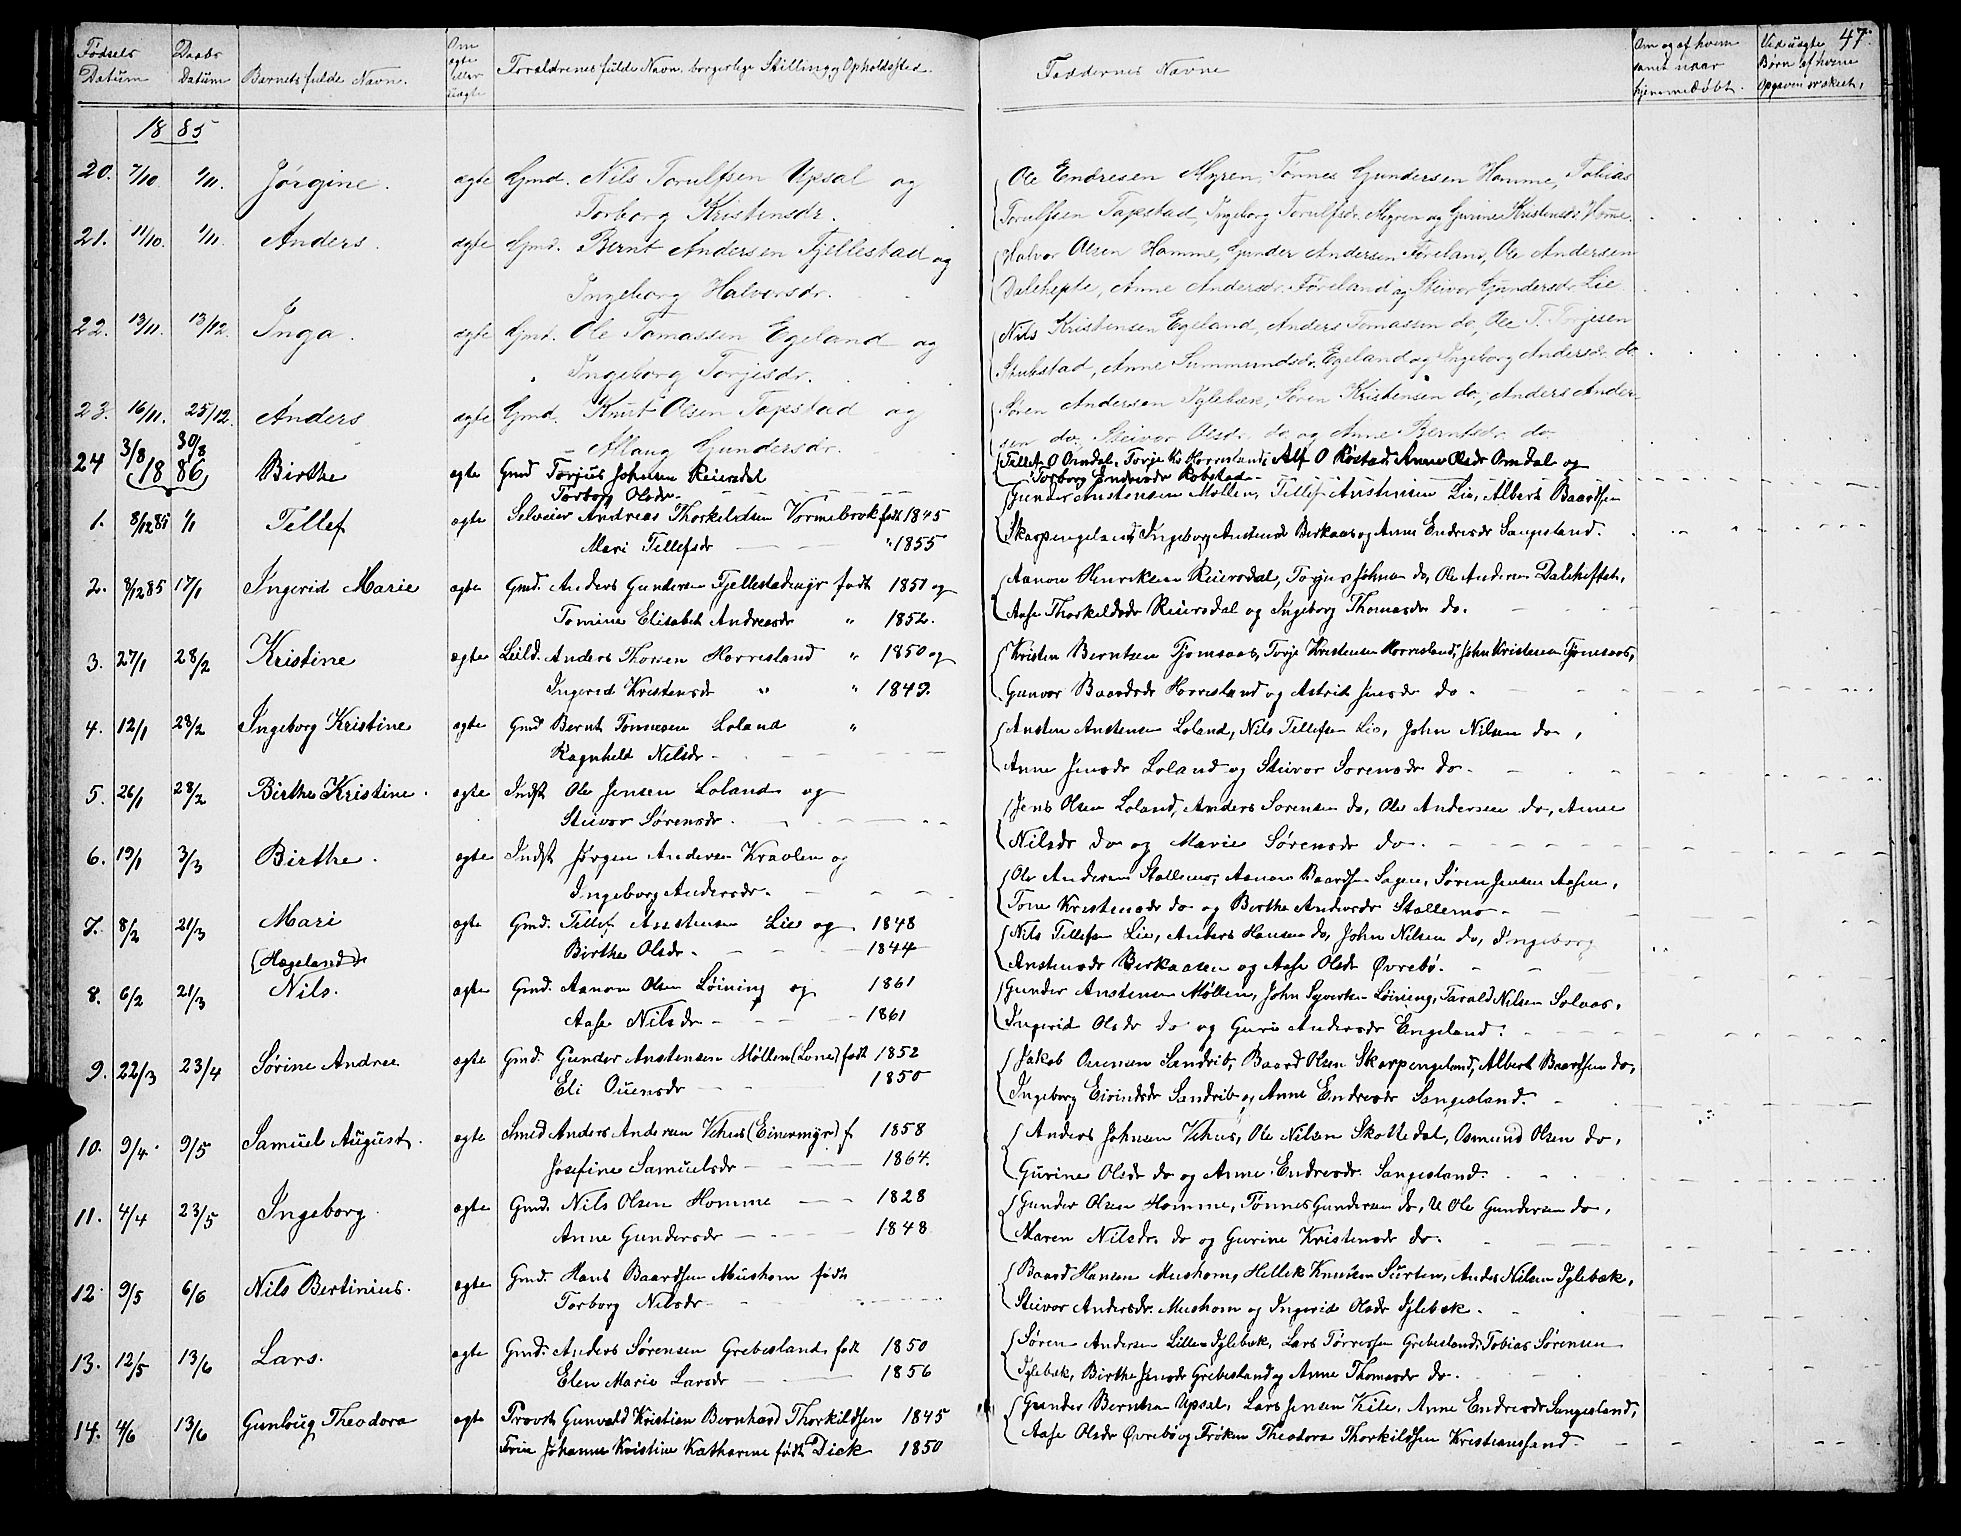 47.
Fødsels Datum
Daabs Datum
Barnets fulde Navn.
Om ægte eller uægte
Forældrenes fulde Navn, borgerlige Stilling og Opholdssted.
Faddernes Navne
Om og af hvem samt naar hjemmedøbt.
Ved uægte Børn af hvem Opgaven er skeet.
1885
20. 7/10 1/11. Jørgine. ægte Gmd. Nils Torulfsen Upsal og
Torborg Kristensdr.
Ole Endresen Myren, Tønnes Gundersen Homme, Tobias
Torulfsen Tapstad, Ingeborg Torulfsdr. Myren og Gurine Kristensdr. Home.
21. 11/10. 1/11. Anders. ægte Gmd. Bernt Andersen Fjellestad og
Ingeborg Halvorsdr.
Halvor Olsen Homme, Gunder Andersen Føreland, Ole Andersen
Dalehefte, Anne Andersdr. Føreland og Steivor Gundersdr. Lie
22. 13/11. 13/12. Inga. ægte Gmd. Ole Tomassen Egeland og
Ingeborg Torjesdr.
Nils Kristensen Egeland, Anders Tomassen do, Ole T. Torjesen
Stubstad, Anne Summundsdr. Egeland og Ingeborg Andersdr. do
23. 16/11. 25/12. Anders ægte Gmd. Knut Olsen Tapstad og
Allaug Gundersdr.
Søren Andersen Iglebæk, Søren Kristensen do, Anders Ander-
sen do, Steivor Olsdr. do og Anne Berntsdr. do
24 3/8 30/8 Birthe ægte Gmd Torjus Johnsen Reiersdal
Torborg Olsdr.
Tellef O Omdal, Torje K Horrisland, Alf O Røistad, Anne Olsdr Omdal og
Torborg Endresdr Robstad
1886
1. 8/12 85 1/1 Tellef ægte Selveier Andreas Thorkildsen Vormebrok født 1845
Mari Tellefsdr " 1855
Gunder Anstensen Møllen, Tellef Anstensen Lie, Albert Baardsen
Skarpengeland, Ingeborg Anstensdr Birkaas og Anne Endresdr Sangesland.
2. 8/12 85 17/1 Ingerid Marie ægte Gmd. Anders Gundersen Fjellestadmyr født 1851 og
Tomine Elisabet Andreasdr " 1852.
Aanon Henriksen Reiersdal, Torjus Johnsen do, Ole Andersen Daleheften,
Aase Thorkildsdr Reiersdal og Ingeborg Thomasdr do.
3. 27/1 28/2 Kristine ægte Leild. Anders Thorsen Horrisland " 1850 og
Ingerid Kristensdr " " 1849.
Kristen Berntsen Tjomsaas, Torje Kristensen Horrisland, John Kristensen Tjomsaas,
Gunvor Baardsdr Horrisland og Astrid Jensdr do.
4. 12/1 28/2 Ingeborg Kristine ægte Gmd Bernt Tønnesen Loland "
Ragnhild Nilsdr
Ansten Anstensen Loland, Nils Tellefsen Lie, John Nilsen do,
Anne Jensdr Loland og Steivor Sørensdr do.
5. 26/1 28/2 Birthe Kristine. ægte Indst Ole Jensen Loland og
Steivor Sørensdr.
Jens Olsen Loland, Anders Sørensen do, Ole Andersen do, Anne
Nilsdr do og Marie Sørensdr do.
6. 19/1 3/3 Birthe. ægte Indst Jørgen Andersen Kravlen og
Ingeborg Andersdr.
Ole Andersen Stallemo, Aanon Baardsen Sagen, Søren Jensen Aasen,
Tone Kristensdr do og Birthe Andersdr Stallemo.
7. 8/2 21/3 Mari ægte Gmd. Tellef Anstensen Lie og 1848
Birthe Olsdr. 1844
Nils Tellefsen Lie, Anders Hansen do, John Nilsen do, Ingeborg
Anstensdr Birkaasen og Aase Olsdr Øvrebø.
(Hægeland)
8. 6/2 21/3 Nils. ægte Gmd. Aanon Olsen Løining og 1861
Aase Nilsdr 1861
Gunder Anstensen Møllen, John Syvertsen Løining, Tarald Nilsen Solaas,
Ingerid Olsdr do og Guri Andersdr Engeland.
9. 22/3 23/4 Sørine Andrea ægte Gmd. Gunder Anstensen Møllen (Lone) født 1852
Eli Ouensdr 1850
Jakob Ouensen Sandrib, Baard Olsen Skarpengeland, Albert Baardsen do,
Ingeborg Eivindsdr Sandrib og Anne Endresdr Sangesland.
10. 9/4. 9/5 Samuel August. ægte Smed Anders Andersen Vehus (Einermyr) f 1858
Josefine Samuelsdr 1864.
Anders Johnsen Vehus, Ole Nilsen Skottedal, Osmund Olsen do,
Gurine Olsdr do og Anne Endresdr. Sangesland.
11. 4/4 23/5 Ingeborg. ægte Gmd. Nils Olsen Homme 1828
Anne Gundersdr 1848
Gunder Olsen Homme, Tønnes Gundersen do, U Ole Gundersen do,
Maren Nilsdr. do og Gurine Kristensdr do.
12. 9/5 6/6 Nils Bertinius. ægte Gmd. Hans Baardsen Mushom født
Torborg Nilsdr
Baard Hansen Mushom, Hellik Knutsen Surten, Anders Nilsen Iglebæk,
Steivor Andersdr. Mushom og Ingerid Olsdr Iglebæk.
13. 12/5 13/6 Lars. ægte Gmd. Anders Sørensen Grebesland født 1850
Elen Marie Larsdr 1856
Søren Andersen Lilleiglebæk, Lars Tørresen Grebesland, Tobias Sørensen
Iglebæk, Birthe Jensdr Grebesland og Anne Thomasdr do.
14. 4/6 13/6 Gunloug Theodora ægte Provst Gunvald Kristian Bernhard Thorkildsen 1845
Frue Johanne Kristine Katharine født Dick 1850
Gunder Berntsen Upsal, Lars Jensen Kile, Anne Endresdr Sangesland,
Aase Olsdr Øvrebø og Frøken Theodora Thorkildsen Kristianssand.